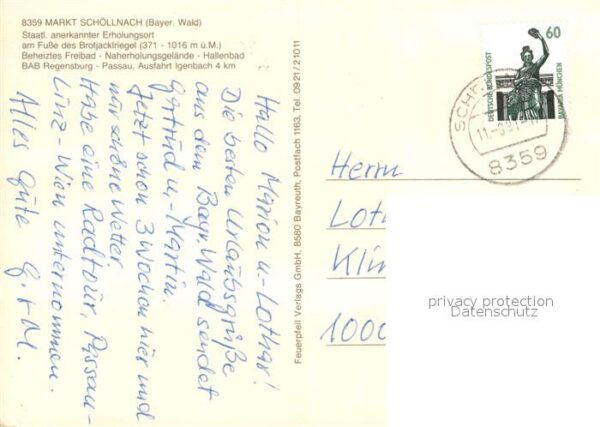 8359 MARKT SCHÖLLNACH (Bayer. Wald)
Staatl. anerkannter Erholungsort
am Fuße des Brotjacklriegel (371 - 1016 m ü.M.)
Beheiztes Freibad - Naherholungsgelände - Hallenbad
BAB Regensburg - Passau, Ausfahrt Igenbach 4 km
Hallo Marion u. Lothar!
Die besten Urlaubsgrüße
aus dem Bayr Wald sendet
Gertrud u. Martin.
Jetzt schon 3 Wochen hier und
nur schöne Wetter.
Habe eine Radtour, Passau-
Linz - Wien unternommen.
Alles Gute G. + M.
Feuerpfeil Verlags GmbH, 8580 Bayreuth, Postfach 1163, Tel. 0921/21011
60
DEUTSCHE BUNDESPOST
BAVARIA MÜNCHEN
8359
Herrn
Loth
Klin
1000
privacy protection
Datenschutz